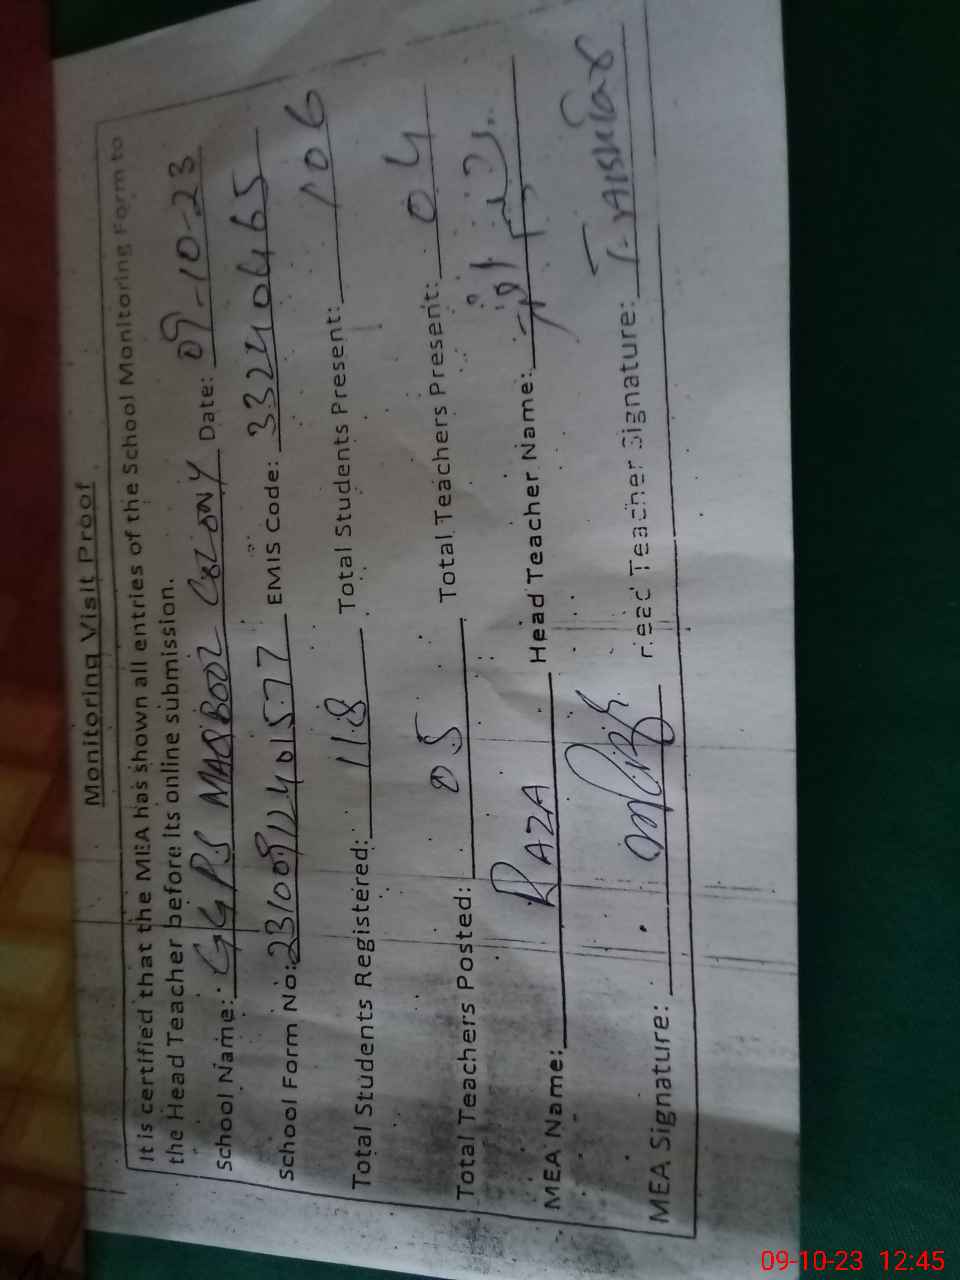 Monitoring Visit Proof
It is certified that the MEA has shown all entries of the School Monitoring Form to
the Head Teacher before its online submission.
School Name: GGPS MAQBOOL COLONY Date: 09-10-23
School Form No: 23100911401577 EMIS Code: 33240465
Total Students Registered: 118 Total Students Present: 106
Total Teachers Posted: 05 Total Teachers Present: 04
MEA Name: RAZA Head Teacher Name:
MEA Signature: Head Teacher Signature:
09-10-23 12:45